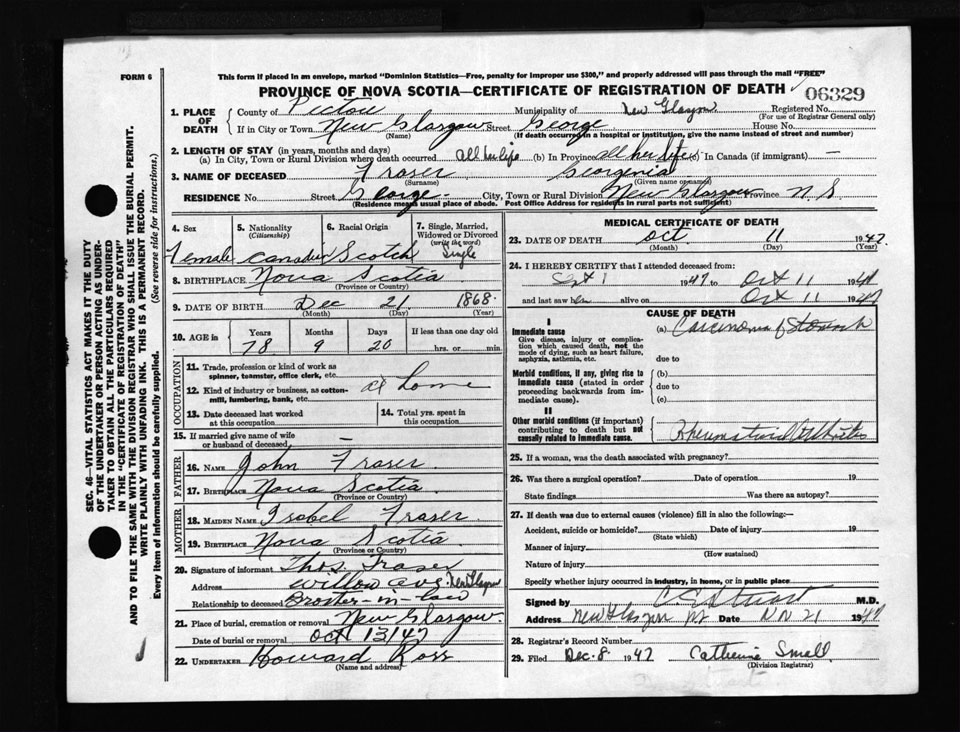 FORM 6
This form if placed in an envelope, marked "Dominion Statistics—Free, penalty for improper use $300," and properly addressed will pass through the mail "FREE"
PROVINCE OF NOVA SCOTIA—CERTIFICATE OF REGISTRATION OF DEATH
06329
1. PLACE OF DEATH
County of Pictou Municipality of New Glasgow Registered No.
(For use of Registrar General only)
If in City or Town New Glasgow Street George House No.
(Name) (If death occurred in a hospital or institution, give the name instead of street and number)
2. LENGTH OF STAY (in years, months and days)
(a) In City, Town or Rural Division where death occurred all her life (b) In Province all her life (c) In Canada (if immigrant) —
3. NAME OF DECEASED Fraser Georgenia
(Surname) (Given name or names)
RESIDENCE No. Street George City, Town or Rural Division New Glasgow Province N.S
(Residence means usual place of abode. Post Office Address for residents in rural parts not sufficient)
4. Sex 5. Nationality (Citizenship) 6. Racial Origin 7. Single, Married, Widowed or Divorced (write the word)
Female Canadian Scotch Single
8. BIRTHPLACE Nova Scotia
(Province or Country)
9. DATE OF BIRTH Dec 21 1868
(Month) (Day) (Year)
10. AGE in Years Months Days If less than one day old
78 9 20 hrs. or min.
OCCUPATION
11. Trade, profession or kind of work as spinner, teamster, office clerk, etc.
12. Kind of industry or business, as cotton-mill, lumbering, bank, etc. at home
13. Date deceased last worked at this occupation
14. Total yrs. spent in this occupation
15. If married give name of wife or husband of deceased —
FATHER
16. NAME John Fraser
17. BIRTHPLACE Nova Scotia
(Province or Country)
MOTHER
18. MAIDEN NAME Isobel Fraser
19. BIRTHPLACE Nova Scotia
(Province or Country)
20. Signature of informant Thos. Fraser
Address Willow Ave. New Glasgow
Relationship to deceased Broster-in-law
21. Place of burial, cremation or removal New Glasgow.
Date of burial or removal Oct 13/47
22. UNDERTAKER Howard Ross
(Name and address)
MEDICAL CERTIFICATE OF DEATH
23. DATE OF DEATH Oct. 11 1947
(Month) (Day) (Year)
24. I HEREBY CERTIFY that I attended deceased from:
Sept 1 1947 to Oct 11 1947
and last saw her alive on Oct 11 1947
CAUSE OF DEATH
I
Immediate cause (a) Carcinoma of Stomach
Give disease, injury or complication which caused death, not the mode of dying, such as heart failure, asphyxia, asthenia, etc.
due to
Morbid conditions, if any, giving rise to immediate cause (stated in order proceeding backwards from immediate cause).
(b)
due to
(c)
II
Other morbid conditions (if important) contributing to death but not causally related to immediate cause.
Rheumatoid Arthritis
25. If a woman, was the death associated with pregnancy?
26. Was there a surgical operation? Date of operation 19
State findings Was there an autopsy?
27. If death was due to external causes (violence) fill in also the following:—
Accident, suicide or homicide? Date of injury 19
(State which)
Manner of injury
(How sustained)
Nature of injury
Specify whether injury occurred in industry, in home, or in public place
Signed by C E Stuart M.D.
Address New Glasgow NS Date Nov 21 1947
28. Registrar's Record Number
29. Filed Dec. 8 1947 Catherine Small
(Division Registrar)
SEC. 46—VITAL STATISTICS ACT MAKES IT THE DUTY
OF THE UNDERTAKER OR PERSON ACTING AS UNDER-
TAKER TO OBTAIN ALL THE PARTICULARS REQUIRED
IN THE "CERTIFICATE OF REGISTRATION OF DEATH"
AND TO FILE THE SAME WITH THE DIVISION REGISTRAR WHO SHALL ISSUE THE BURIAL PERMIT.
WRITE PLAINLY WITH UNFADING INK. THIS IS A PERMANENT RECORD.
Every item of information should be carefully supplied. (See reverse side for instructions.)